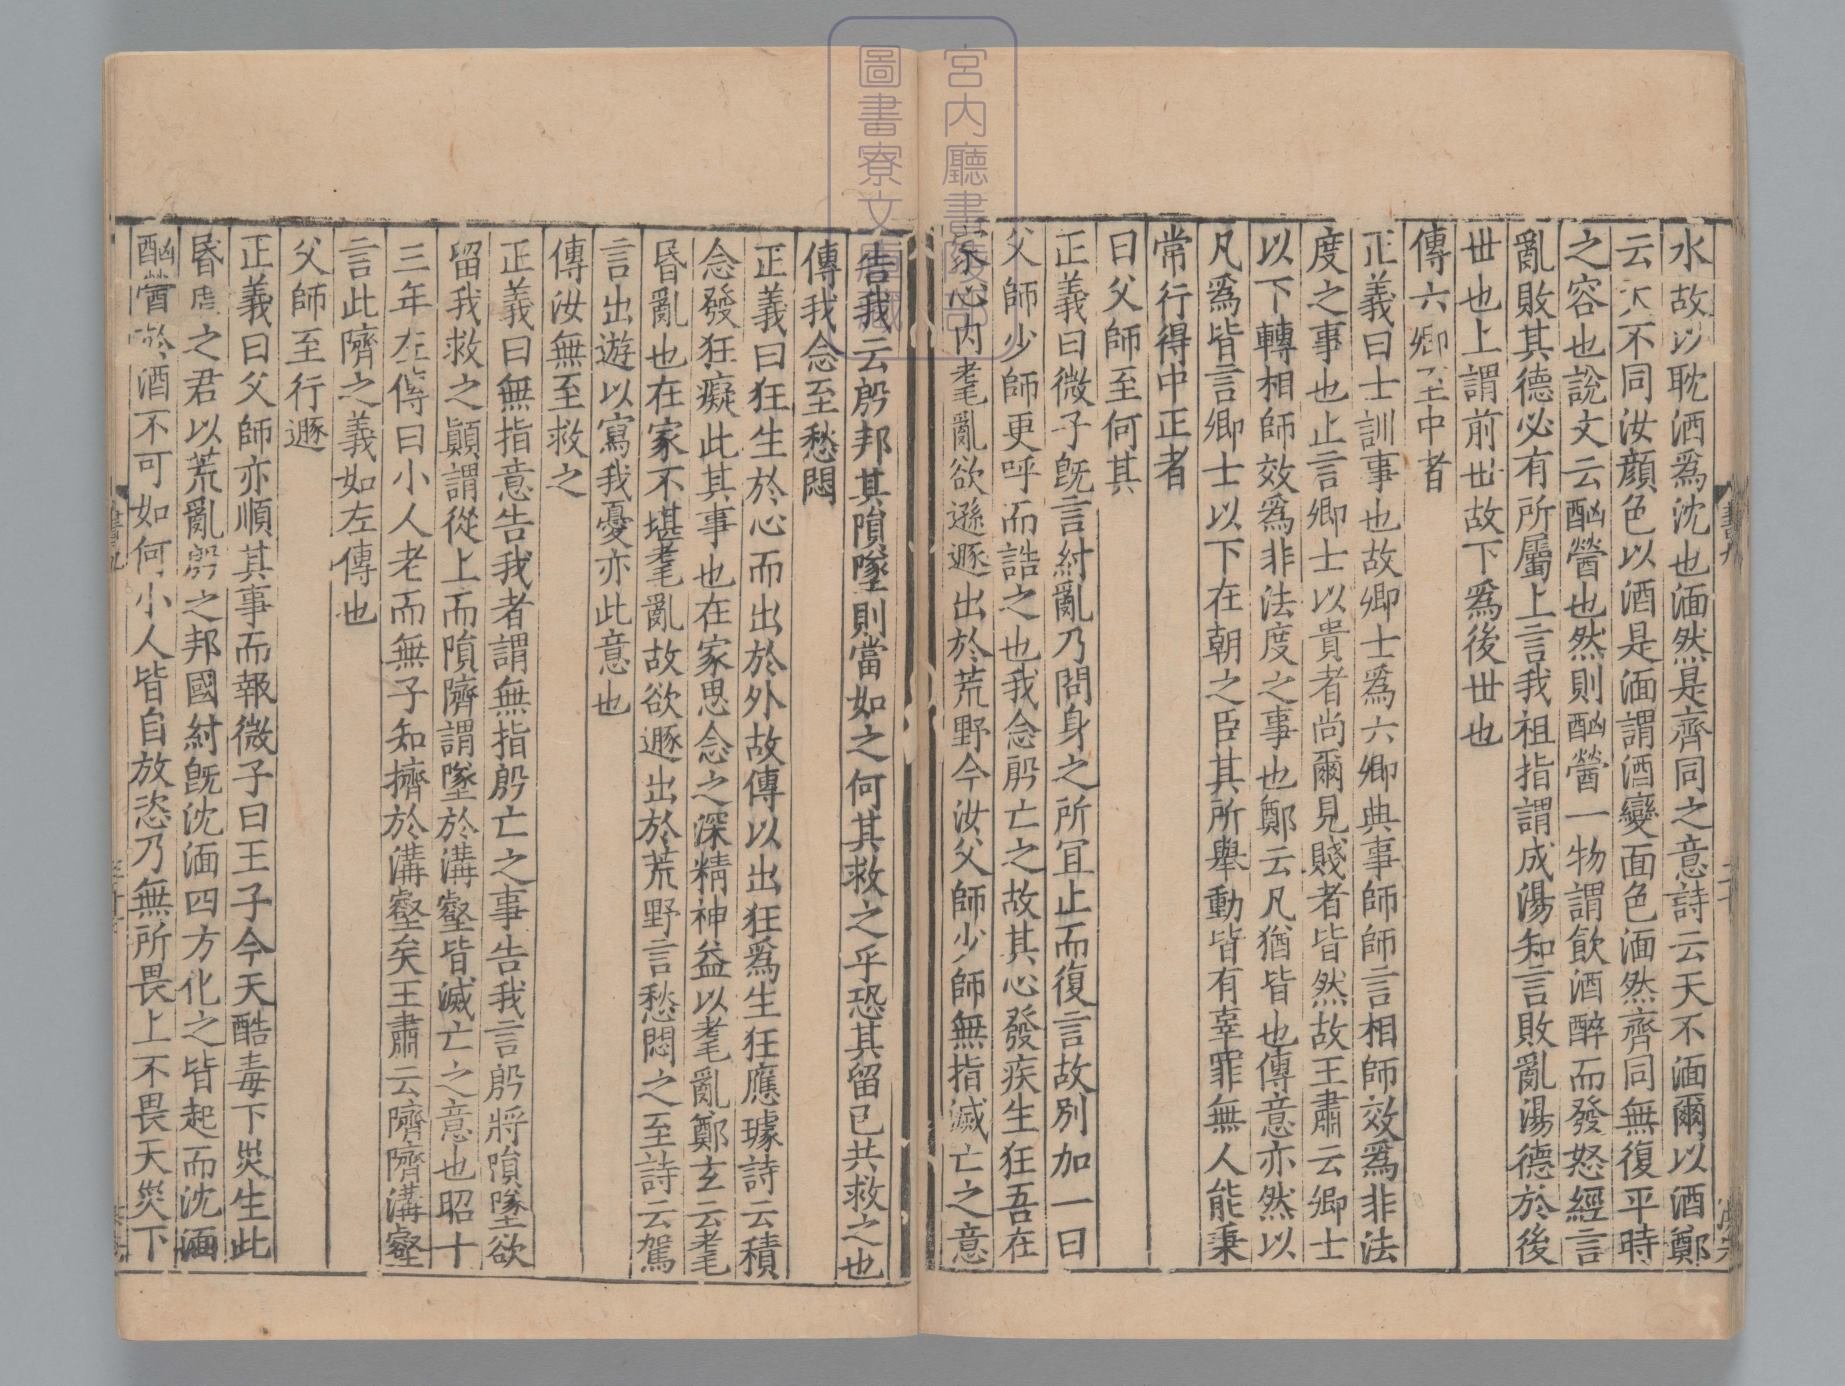 水故以耽洒爲沈也湎然是齊同之意詩云天不湎爾以酒鄭
云天不同汝顔色以酒是湎謂酒變面色湎然齊同無復平時
之容也說文云酗醟也然則酗醟一物謂飲酒醉而發怒經言
亂敗其德必有所屬上言我祖指謂成湯知言敗亂湯德於後
丗也上謂前丗故下爲後丗也
傳六卿至中者
正義曰士訓事也故卿士爲六卿典事師師言相師效爲非法
度之事也止言卿士以貴者尚爾見賤者皆然故王肅云卿士
以下轉相師效爲非法度之事也鄭云凡猶皆也傳意亦然以
凡爲皆言卿士以下在朝之臣其所舉動皆有辜罪無人能秉
常行得中正者
曰父師至何其
正義曰微子旣言紂亂乃問身之所宜止而復言故別加一曰
父師少師更呼而誥之也我念殷亡之故其心發疾生狂吾在
家心内耄亂欲遜遯出於荒野今汝父師少師無指滅亡之意
告我云殷邦其隕墜則當如之何其救之乎恐其留己共救之也
傳我念至愁悶
正義曰狂生於心而出於外故傳以出狂爲生狂應璩詩云積
念發狂癡此其事也在家思念之深精神益以耄亂鄭玄云耄
昬亂也在家不堪耄亂故欲遯出於荒野言愁悶之至詩云駕
言出遊以寫我憂亦此意也
傳汝無至救之
正義曰無指意告我者謂無指殷亡之事告我言殷將隕墜欲
留我救之顚謂從上而隕隮謂墜於溝壑皆滅亡之意也昭十
三年左傳曰小人老而無子知擠於溝壑矣王肅云隮隮溝壑
言此隮之義如左傳也
父師至行遯
正義曰父師亦順其事而報微子曰王子今天酷毒下災生此
昬虐之君以荒亂殷之邦國紂旣沈湎四方化之皆起而沈湎
酗醟於酒不可如何小人皆自放恣乃無所畏上不畏天災下
宮内廳書
圖書寮文